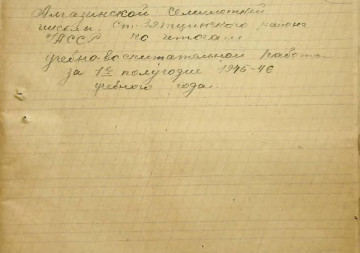 Алгазинской семилетней
школы Ст-Зятцинского района
УАССР по итогам
учебно-воспитательной работы
за 1ое полугодие 1945-46
учебного года.